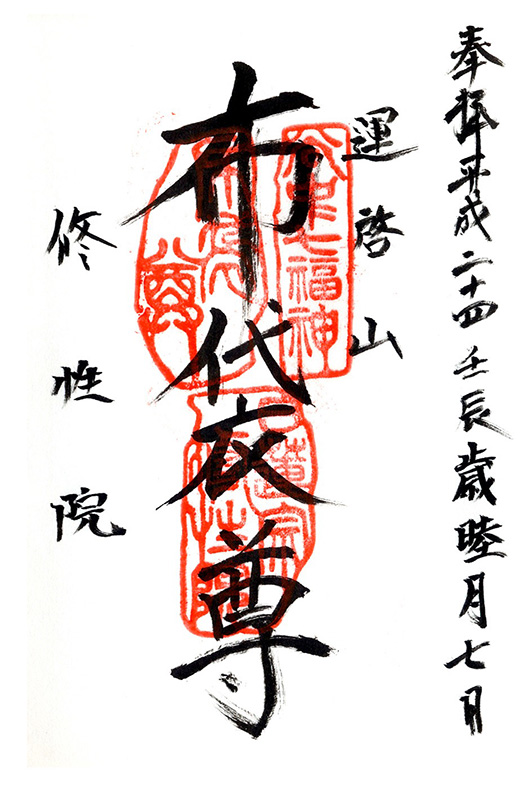 奉拝平成二十四壬辰歳睦月七日
運啓山
谷中七福神
布代衣尊
修性院